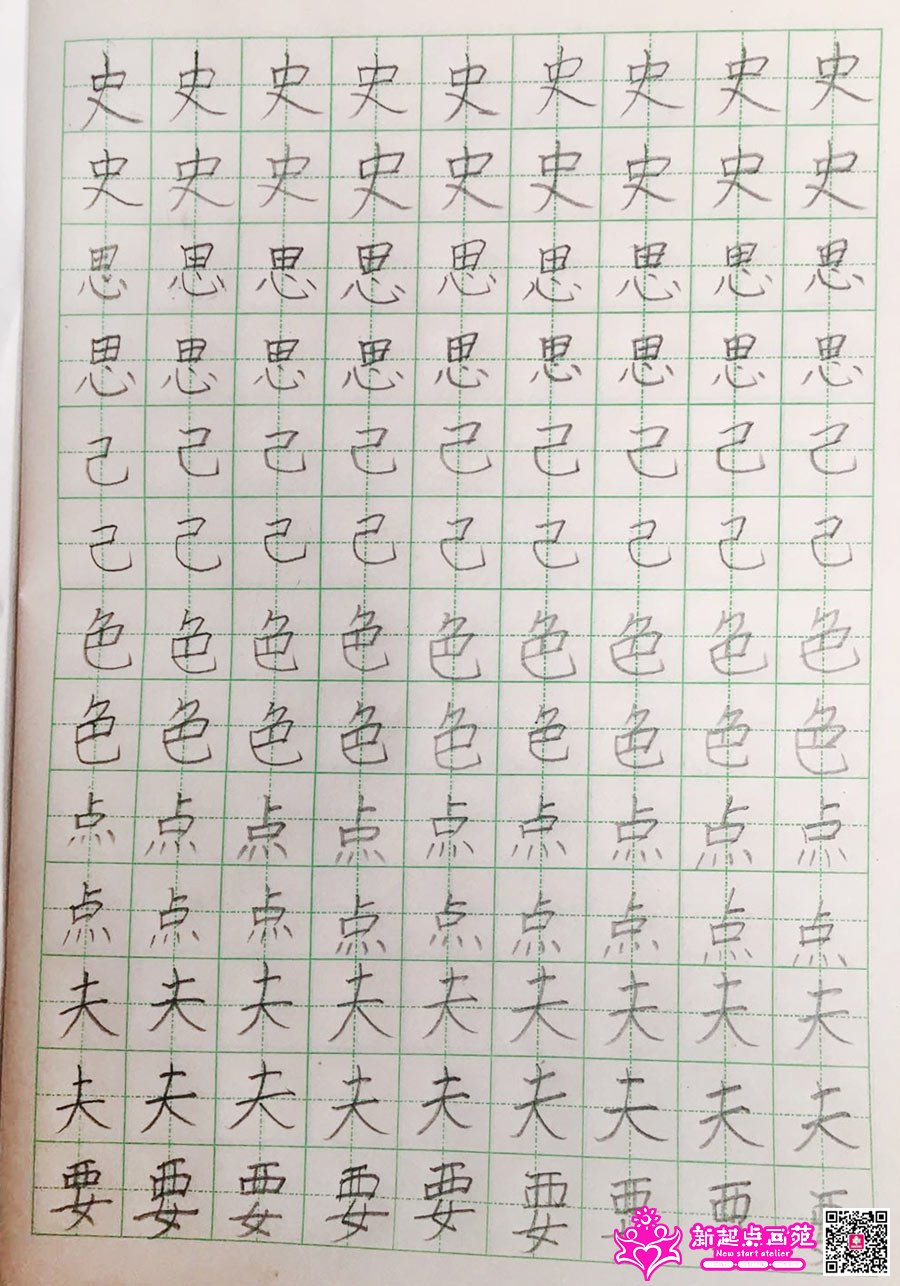 史史史史史史史史史
史史史史史史史史史
思思思思思思思思思
思思思思思思思思思
己己己己己己己己己
己己己己己己己己己
色色色色色色色色色
色色色色色色色色色
点点点点点点点点点
点点点点点点点点点
夫夫夫夫夫夫夫夫夫
夫夫夫夫夫夫夫夫夫
要要要要要要
新起点画苑
New start atelier